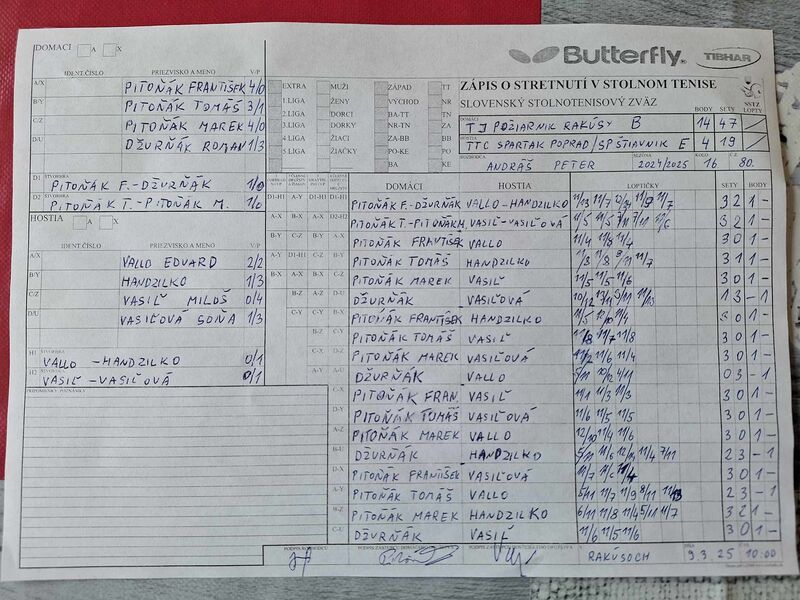 Butterfly
TIBHAR
DOMÁCI A X
IDENT.ČÍSLO PRIEZVISKO A MENO V/P
A/X PITOŇÁK FRANTIŠEK 4/0
B/Y PITOŇÁK TOMÁŠ 3/1
C/Z PITOŇÁK MAREK 4/0
D/U DŽURŇÁK ROMAN 1/3
D1 ŠTVORHRA PITOŇÁK F.-DŽURŇÁK 1/0
D2 PITOŇÁK T.-PITOŇÁK M. 1/0
HOSTIA A X
IDENT.ČÍSLO PRIEZVISKO A MENO V/P
A/X VALLO EDUARD 2/2
B/Y HANDZILKO 1/3
C/Z VASIĽ MILOŠ 0/4
D/U VASIĽOVÁ SOŇA 1/3
H1 ŠTVORHRA VALLO - HANDZILKO 0/1
H2 VASIĽ - VASIĽOVÁ 0/1
PRIPOMIENKY, POZNÁMKY
EXTRA MUŽI ZÁPAD TT
1.LIGA ŽENY VÝCHOD NR
2.LIGA DORCI BA-TT TN
3.LIGA DORKY NR-TN ZA
4.LIGA ŽIACI ZA-BB BB
5.LIGA ŽIAČKY PO-KE PO
BA KE
ZÁPIS O STRETNUTÍ V STOLNOM TENISE
SLOVENSKÝ STOLNOTENISOVÝ ZVÄZ
BODY SETY SSTZ LNTZ
DOMÁCI TJ POŽIARNIK RAKÚSY B 14 47
HOSTIA TTC SPARTAK POPRAD/SP ŠTIAVNIK E 4 19
ROZHODCA ANDRÁŠ PETER SEZÓNA 2024/2025 KOLO 16 Č.Z. 80.
DOMÁCI HOSTIA LOPTIČKY SETY BODY
PITOŇÁK F.-DŽURŇÁK VALLO-HANDZILKO 3 2 1 -
PITOŇÁK T.-PITOŇÁK M. VASIĽ-VASIĽOVÁ 3 2 1 -
PITOŇÁK FRANTIŠEK VALLO 11/4 11/8 11/4 3 0 1 -
PITOŇÁK TOMÁŠ HANDZILKO 11/8 11/8 9/11 11/7 3 1 1 -
PITOŇÁK MAREK VASIĽ 11/5 11/5 11/6 3 0 1 -
DŽURŇÁK VASIĽOVÁ 1 3 - 1
PITOŇÁK FRANTIŠEK HANDZILKO 3 0 1 -
PITOŇÁK TOMÁŠ VASIĽ 3 0 1 -
PITOŇÁK MAREK VASIĽOVÁ 11/6 11/4 3 0 1 -
DŽURŇÁK VALLO 5/11 10/12 4/11 0 3 - 1
PITOŇÁK FRAN. VASIĽ 11/1 11/3 11/3 3 0 1 -
PITOŇÁK TOMÁŠ VASIĽOVÁ 11/6 11/5 11/5 3 0 1 -
PITOŇÁK MAREK VALLO 12/10 11/4 11/6 3 0 1 -
DŽURŇÁK HANDZILKO 11/4 7/11 2 3 - 1
PITOŇÁK FRANTIŠEK VASIĽOVÁ 3 0 1 -
PITOŇÁK TOMÁŠ VALLO 5/11 11/7 11/9 8/11 2 3 - 1
PITOŇÁK MAREK HANDZILKO 6/11 11/8 11/4 5/11 11/7 3 2 1 -
DŽURŇÁK VASIĽ 11/6 11/5 11/6 3 0 1 -
RAKÚSOCH 9.3.25 10:00